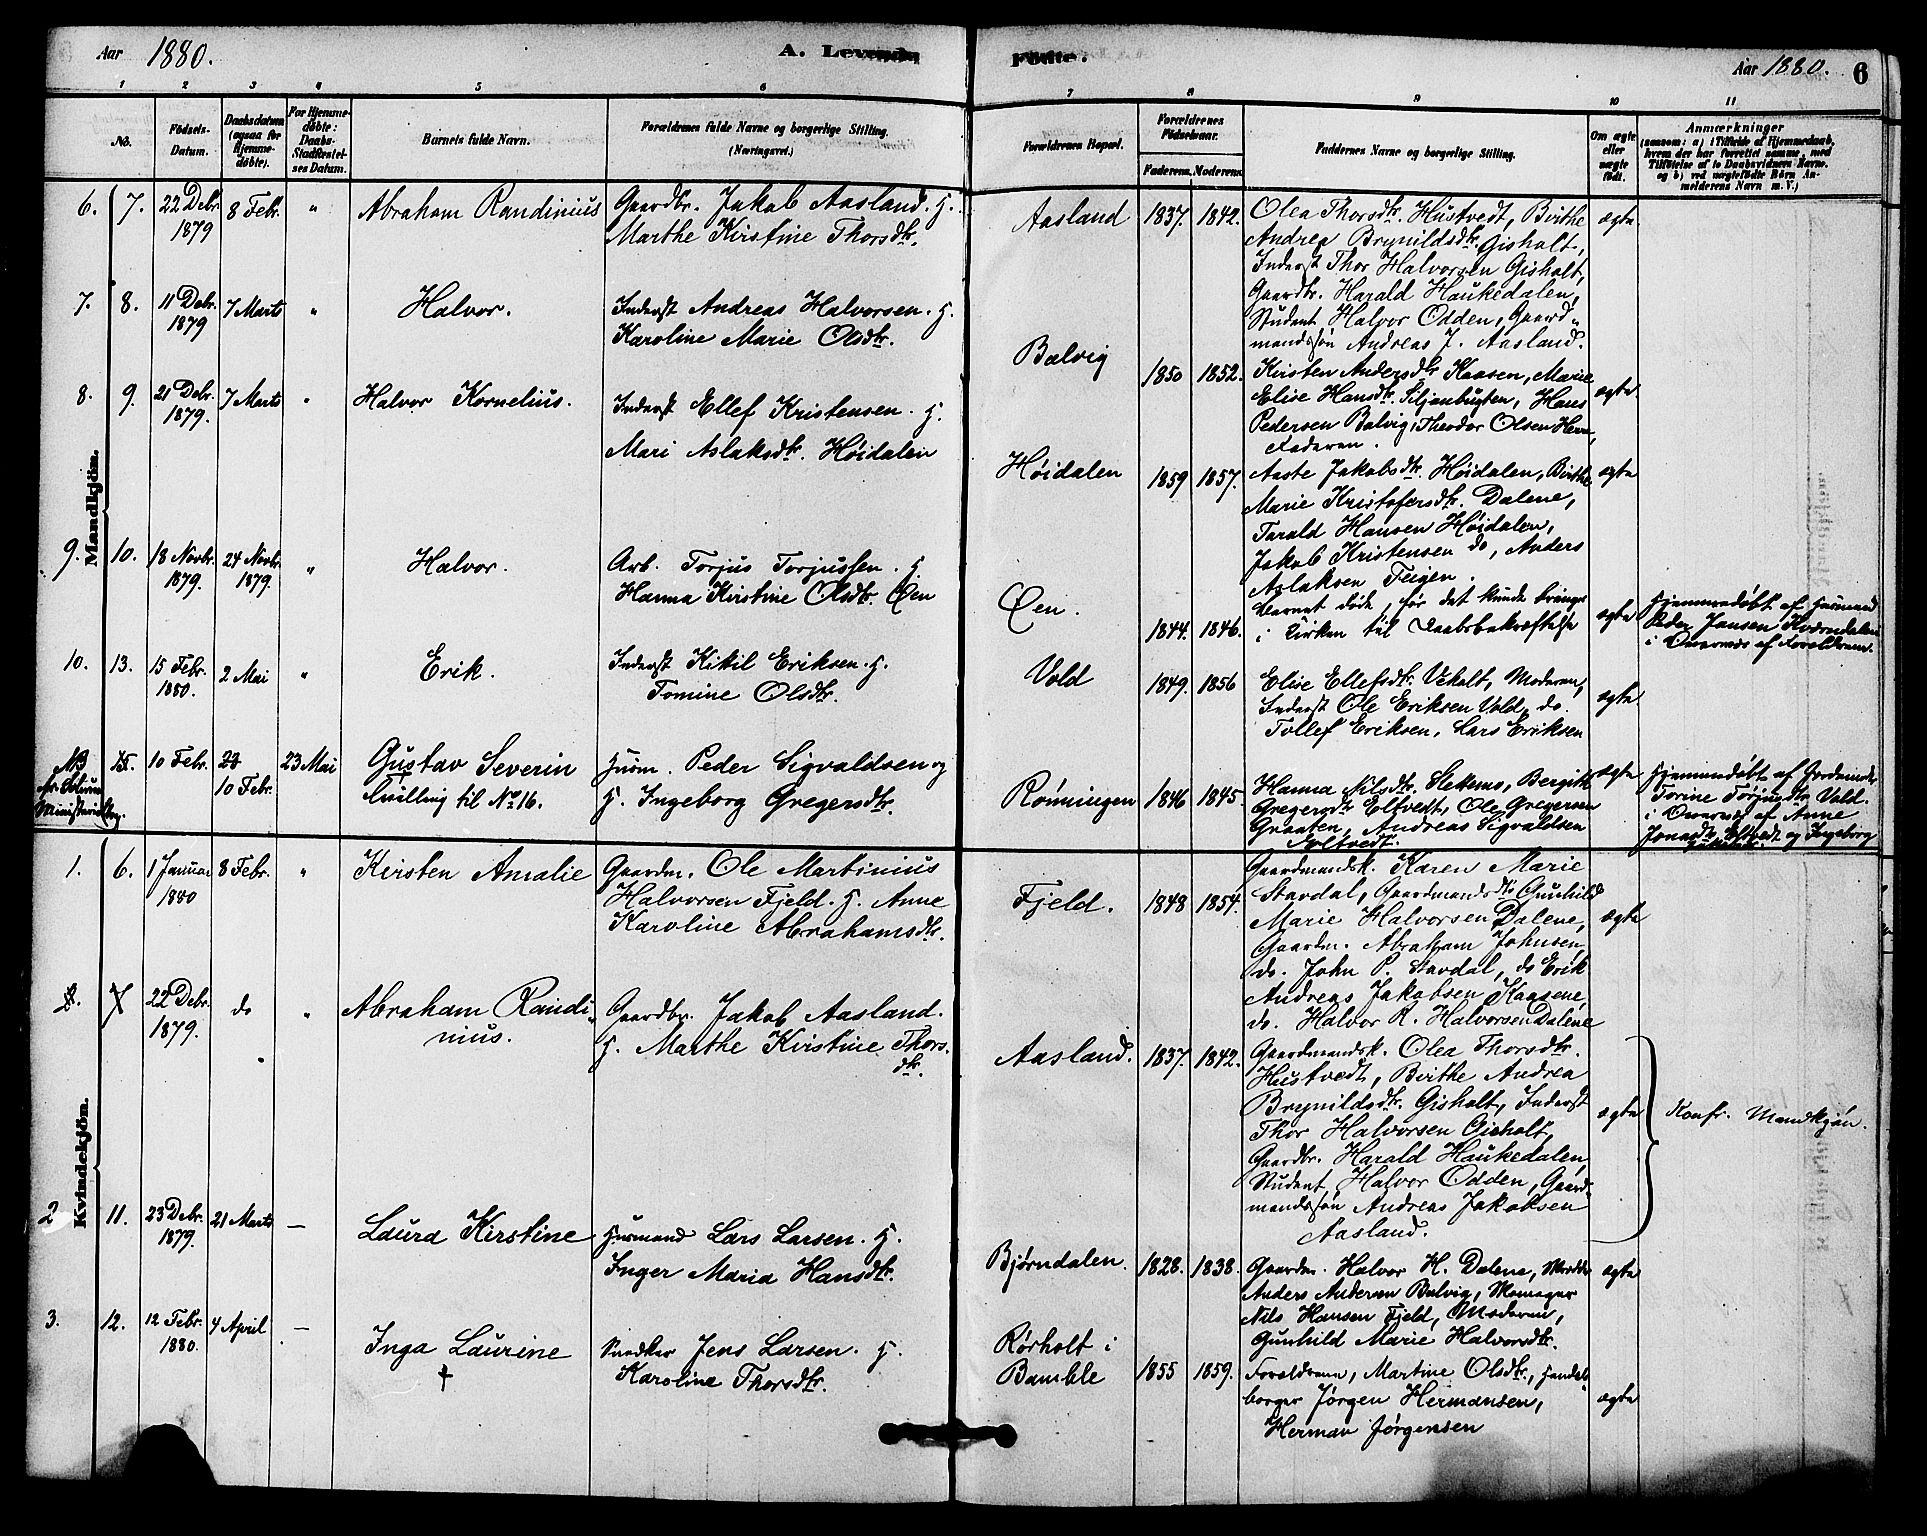 Aar 1880.
A. Levende
Fødte.
Aar 1880. 6
1 2 3 4 5 6 7 8 9 10 11
No.
Fødsels-
Datum.
Daabsdatum
(ogsaa for
Hjemme-
døbte).
For Hjemme-
døbte:
Daabs-
Stadfæstel-
ses Datum.
Barnets fulde Navn.
Forældrenes fulde Navne og borgerlige Stilling.
(Næringsvei.)
Forældrenes Bopæl.
Forældrenes
Fødselsaar.
Faderens. Moderens.
Faddernes Navne og borgerlige Stilling.
Om ægte
eller
uægte
født.
Anmærkninger
(saasom: a) i Tilfælde af Hjemmedaab,
hvem der har forrettet samme, med
Tilføielse af to Daabsvidners Navne.
og b) ved uægtefødte Børn An-
melderens Navn m. V.)
Mandkjøn.
6. 7. 22 Debr. 8 Febr. " Abraham Randinius Gaardbr. Jakob Aasland. H.
1879 Marthe Kirstine Thorsdtr.
Aasland 1837. 1842. Olea Thorsdtr. Hustvedt, Birthe ægte
Andrea Brynildsdtr. Gisholt,
Inderst Thor Halvorsen Gisholt,
Gaardbr. Harald Haukedalen,
Student Halvor Odden, Gaard-
mandssøn Andreas J. Aasland.
7. 8. 11 Debr. 7 Marts " Halvor. Inderst Andreas Halvorsen. H.
1879 Karoline Marie Olsdtr.
Bælvig 1850 1852. Kirsten Andersdtr. Kaasen, Marie ægte
Elise Hansdtr. Siljanbugten, Hans
Pedersen Balvig, Theodor Olsen Herre,
Faderen.
8. 9. 21 Debr. 7 Marts " Halvor Kornelius. Inderst Ellef Kristensen. H.
1879. Mari Aslaksdtr. Høidalen
Høidalen 1859 1857. Aaste Jakobsdtr. Høidalen, Birthe ægte
Marie Kristofersdtr. Dalene,
Tarald Hansen Høidalen,
Jakob Kristensen do, Anders
Aslaksen Feigen.
9. 10. 18 Novbr. 24 Novbr. " Halvor. Arb. Torjus Torjussen. H
1879. 1879. Hanna Kirstine Olsdtr. Øen
Øen. 1844. 1846. Barnet døde, før det kunde bringes ægte Hjemmedøbt af Husmand
i Kirken til Daabsbekræftelse Peder Jansen Kverndalen
i Overvær af Forældrene.
10. 13. 15 Febr. 2 Mai " Erik. Inderst Kittil Eriksen. H.
1880. Tomine Olsdtr.
Vold 1849. 1856 Elise Ellefsdtr. Vekalt, Moderen, ægte
Inderst Ole Eriksen Vold, do.
Tollef Eriksen, Lars Eriksen
NB 15. 10 Febr. 22 23 Mai Gustav Severin Husm. Peder Sigvaldsen og
10 Febr. Tvilling til No 16. H. Ingeborg Gregersdtr.
Ministerialbog.
Rønningen 1846 1845. Hanna Nilsdtr. Stokkemo, Bergitte ægte Hjemmedøbt af Jordemoder
Gregersdtr. Eltvedt, Ole Gregersen Torine Torjusdtr. Vold.
Graaten, Andreas Sigvaldsen i Overvær af Anne
Toltvedt. Jonasdtr. Eltvedt og Ingeborg
Kvindekjøn.
1. 6. 1 Januar 8 Febr. " Kirsten Amalie Gaardm. Ole Martinius
1880 Halvorsen Fjeld. H. Anne
Karoline Abrahamsdtr.
Fjeld. 1848 1854. Gaardmandsk. Karen Marie
Stavdal, Gaardmandsdtr. Gunhild
Marie Halvorsen Dalene, ægte
Gaardm. Abraham Johnsen,
do. John P. Stavdal, do Erik
Andreas Jakobsen Kaasene,
do. Halvor R. Halvorsen Dalene
2. 7 22 Debr. do " Abraham Randi- Gaardbr. Jakob Aasland.
1879. nius. H. Marthe Kirstine Thors-
dtr.
Aasland. 1837. 1842. Gaardmandsk. Olea Thorsdtr.
Hustvedt, Birthe Andrea
Brynildsdtr. Gisholt, Inderst ægte Konfr. Mandkjøn.
Thor Halvorsen Gisholt,
Gaardbr. Harald Haukedalen,
Student Halvor Odden, Gaard-
mandssøn Andreas Jakobsen
Aasland.
2 11. 23 Debr. 21 Marts — Laura Kirstine Husmand Lars Larsen. H.
1879. Inger Maria Hansdtr.
Bjørndalen. 1828. 1838. Gaardm. Halvor H. Dalene, ægte
Anders Andersen Balvig, Skomager
Nils Hansen Fjeld, Moderen,
Gunhild Marie Halvorsdtr.
3. 12. 12 Febr. 4 April — Inga Laurine Snedker Jens Larsen. H.
1880. † Karoline Thorsdtr.
Rørholt i
Bamble 1855 1859. Forældrene, Martine Olsdtr., Handels-
borger Jørgen Hermansen, ægte
Herman Jørgensen